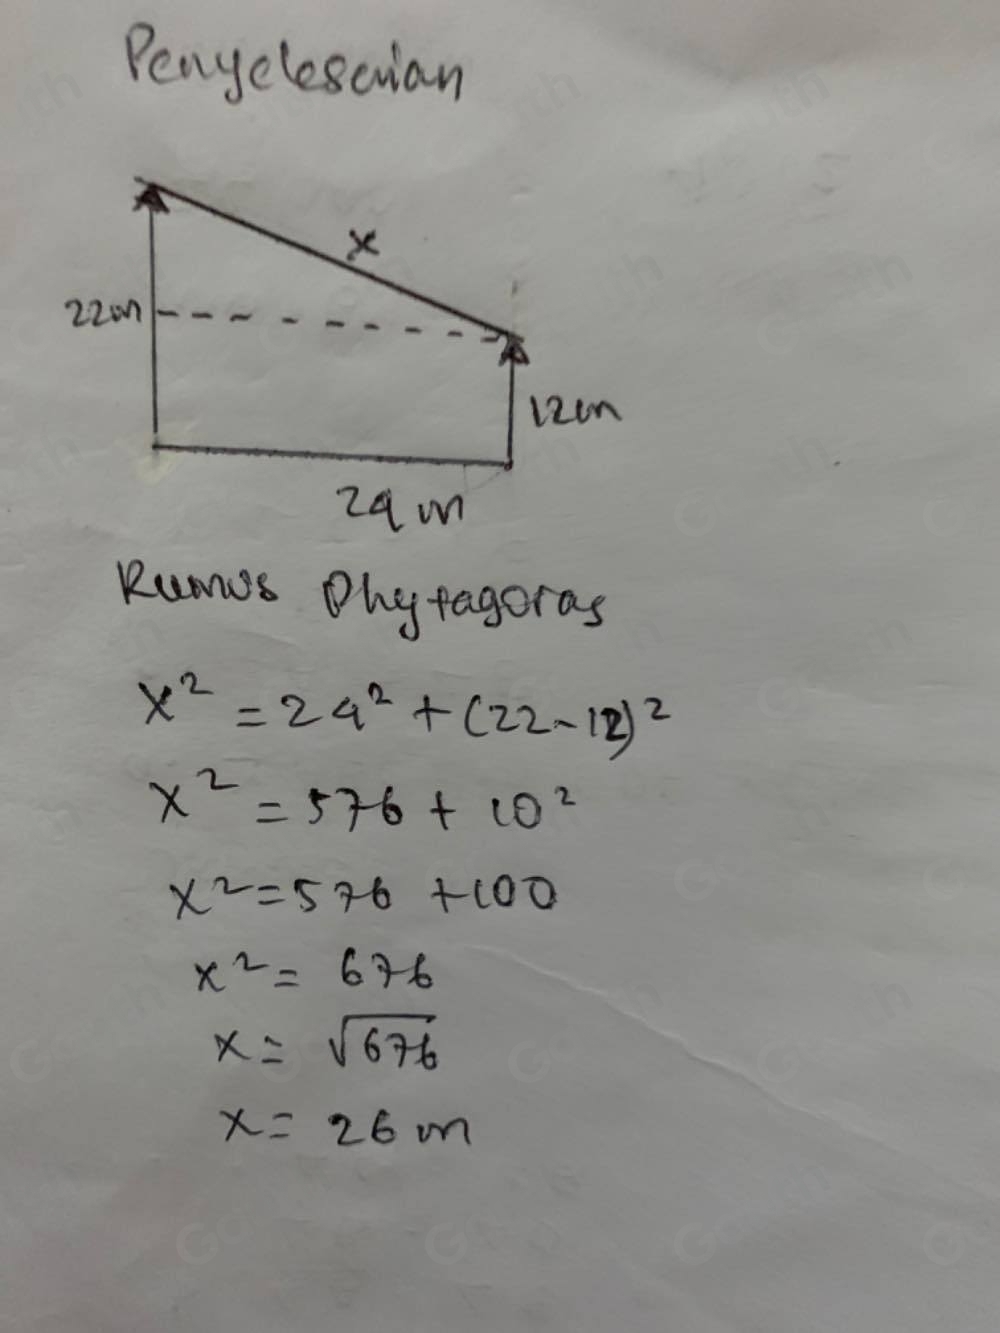 Penyelesaian
x
22m
12m
24 m
Rumus Phytagoras
x² = 24² + (22-12)²
x² = 576 + 10²
x² = 576 + 100
x² = 676
x = √676
x = 26 m